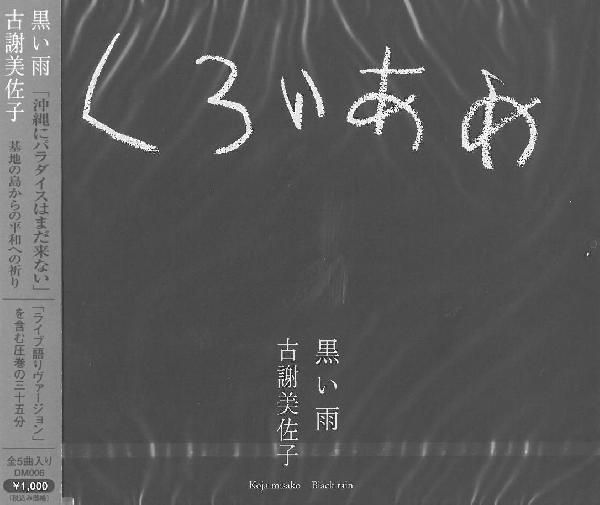 黒い雨
古謝美佐子
「沖縄にパラダイスはまだ来ない」
基地の島からの平和への祈り
「ライブ語りヴァージョン」
を含む圧巻の三十五分
全5曲入り
DM006
¥1,000
(税込み価格)
くろいあめ
黒い雨
古謝美佐子
Koja misako Black rain